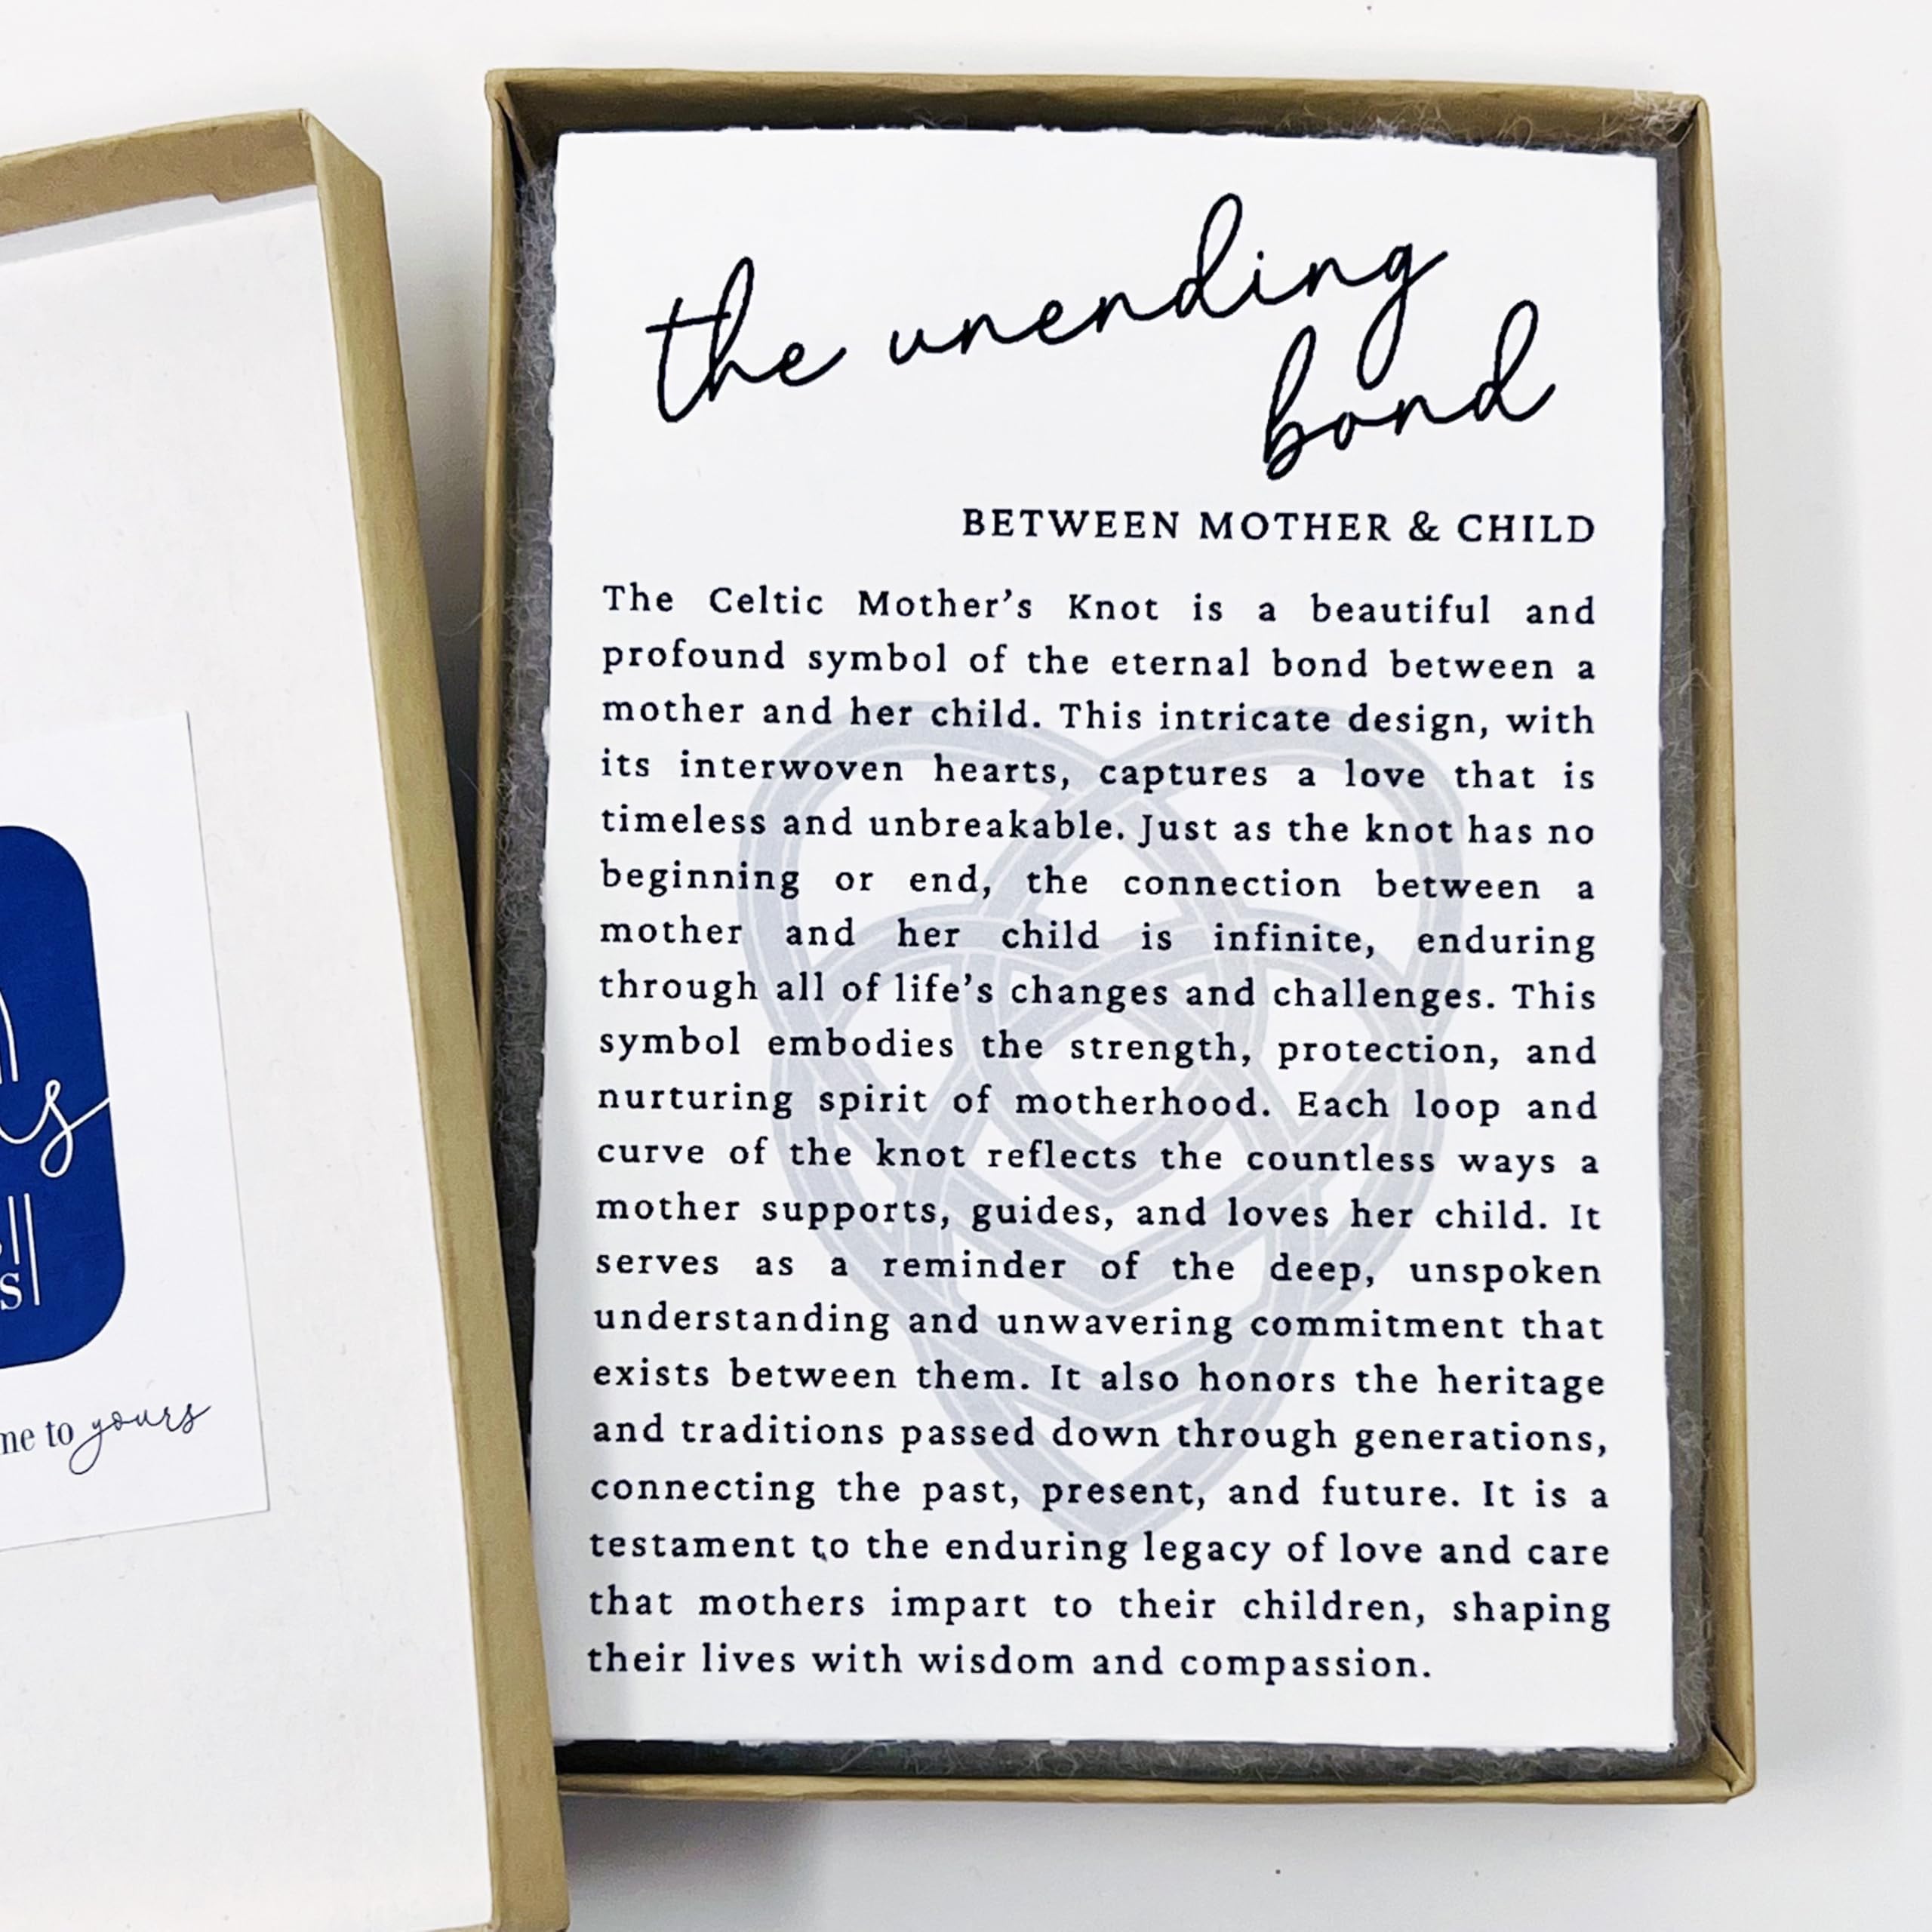 the unending
bond
BETWEEN MOTHER & CHILD
The Celtic Mother’s Knot is a beautiful and
profound symbol of the eternal bond between a
mother and her child. This intricate design, with
its interwoven hearts, captures a love that is
timeless and unbreakable. Just as the knot has no
beginning or end, the connection between a
mother and her child is infinite, enduring
through all of life’s changes and challenges. This
symbol embodies the strength, protection, and
nurturing spirit of motherhood. Each loop and
curve of the knot reflects the countless ways a
mother supports, guides, and loves her child. It
serves as a reminder of the deep, unspoken
understanding and unwavering commitment that
exists between them. It also honors the heritage
and traditions passed down through generations,
connecting the past, present, and future. It is a
testament to the enduring legacy of love and care
that mothers impart to their children, shaping
their lives with wisdom and compassion.
to yours